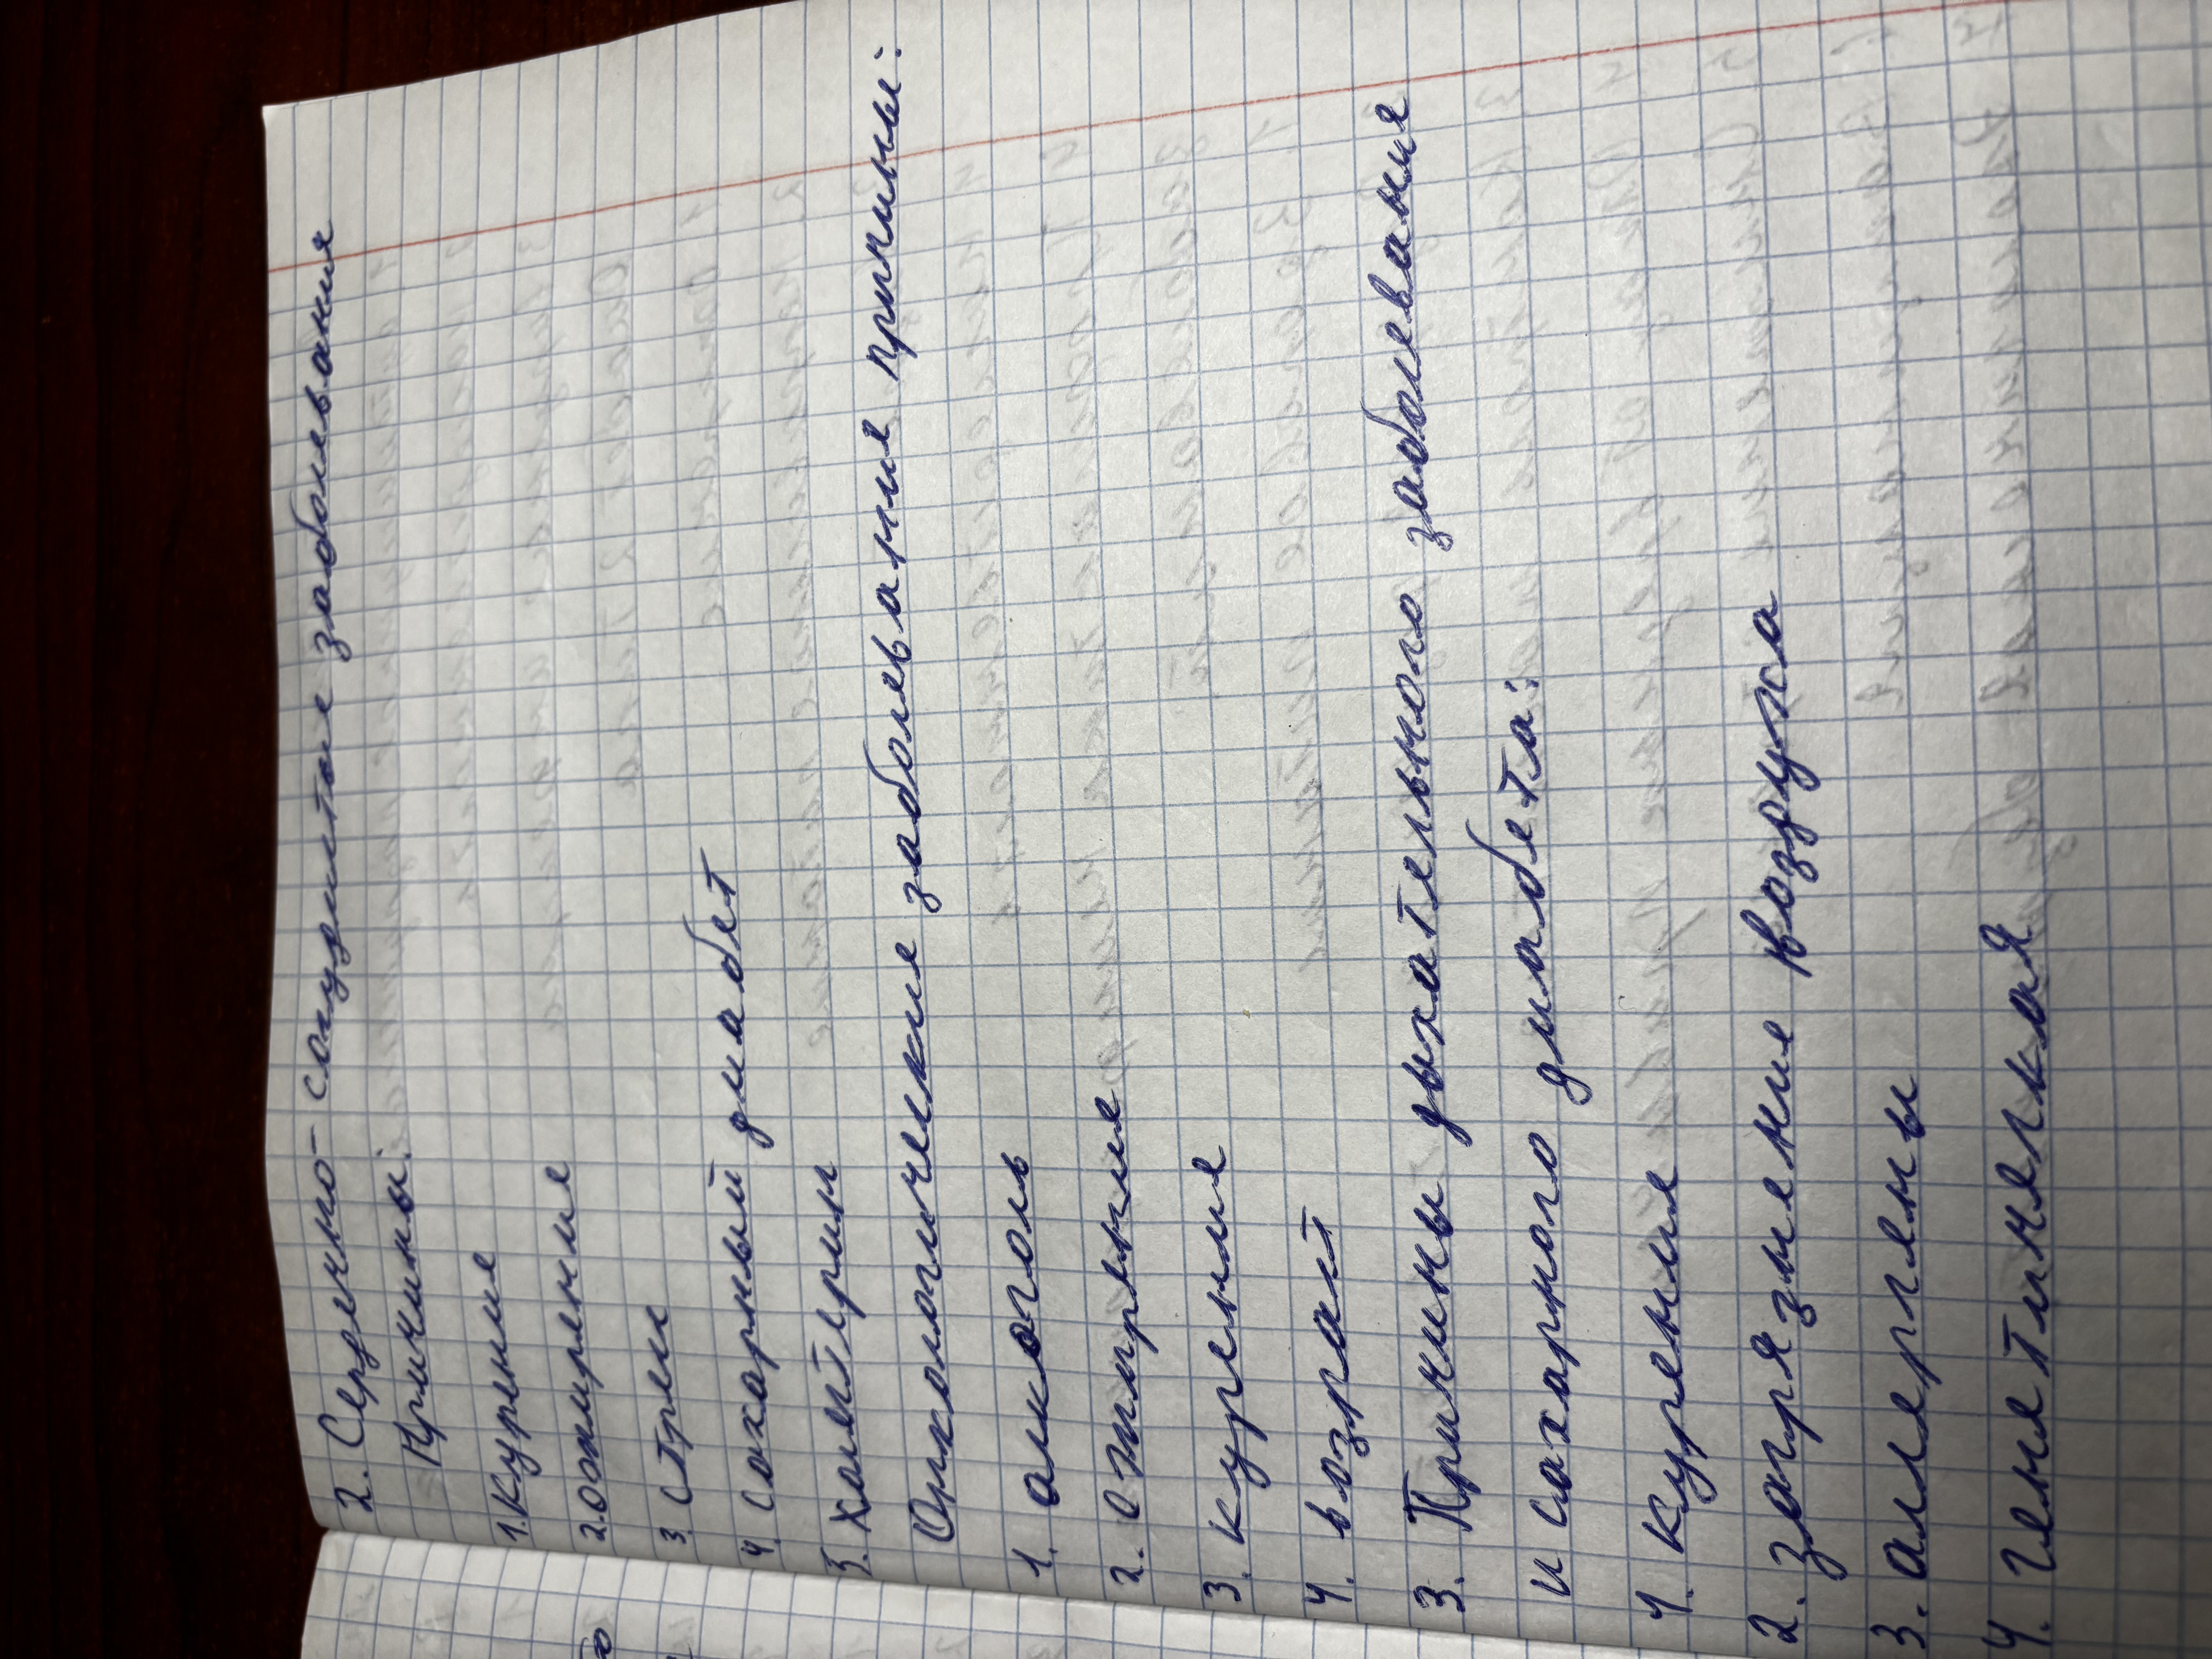 2. Сердечно-сосудистые заболевания
Причины:
1. Курение
2. ожирение
3. стресс
4. сахарный диабет
5. Холестерин
Онкологические заболевания причины:
1. алкоголь
2. ожирение
3. курение
4. возраст
3. Причины дыхательного заболевания
и сахарного диабета:
1. курения
2. загрязнение воздуха
3. аллергены
4. генетическая